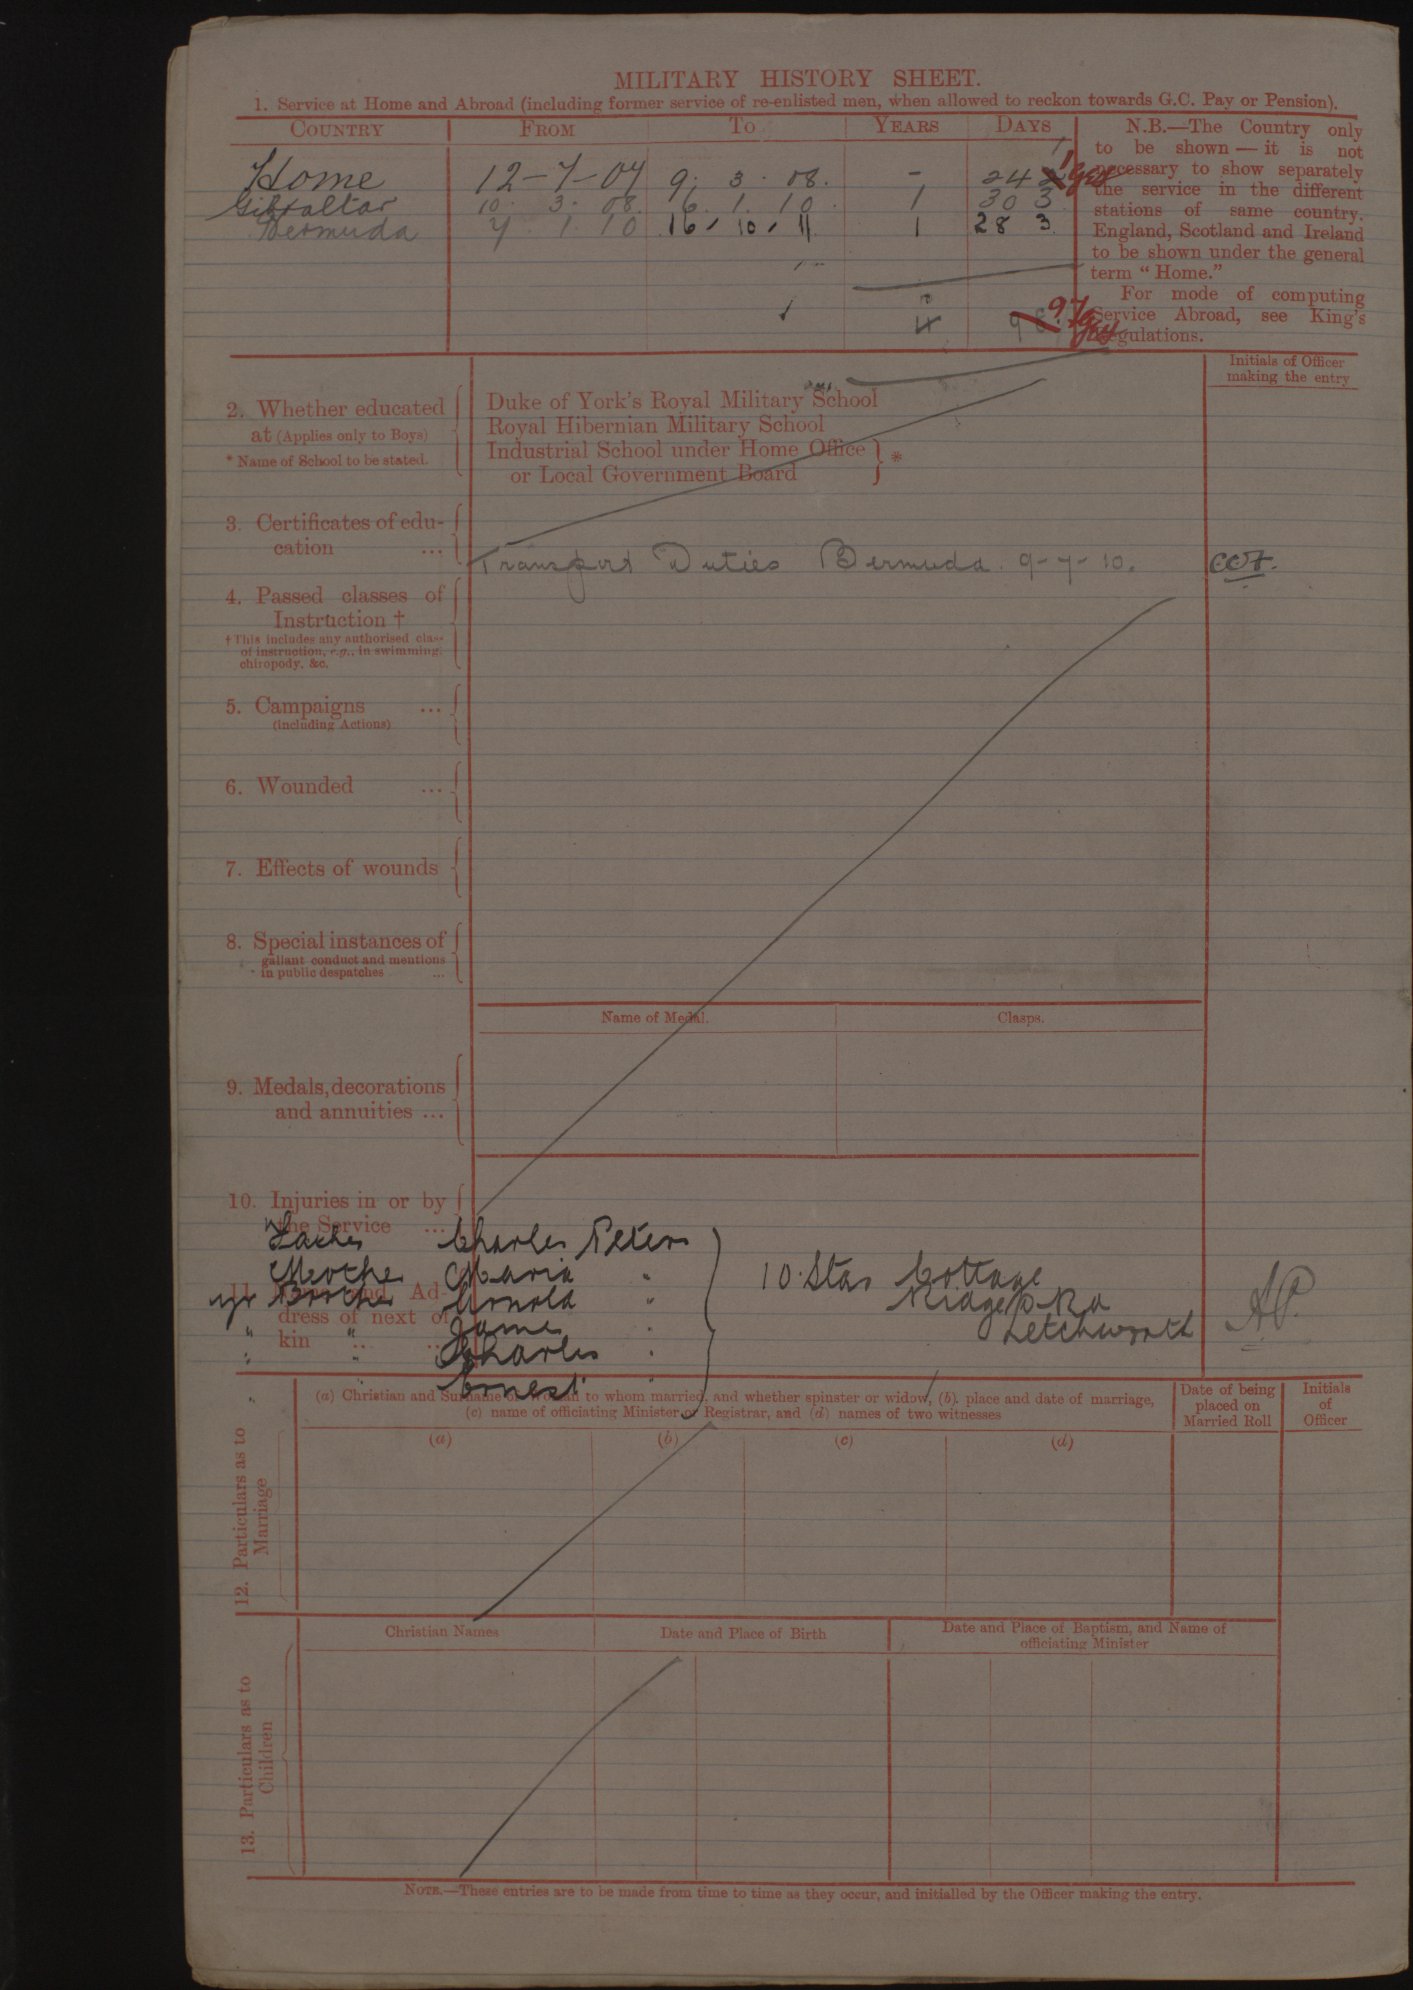 MILITARY HISTORY SHEET.
1. Service at Home and Abroad (including former service of re-enlisted men, when allowed to reckon towards G.C. Pay or Pension).
COUNTRY FROM TO YEARS DAYS
Home 12-7-07 9. 3. 08. - 242
Gibraltar 10. 3. 08. 6. 1. 10. 1 303
Bermuda 7 1 10 16, 10, 11 1 283
4
N.B.—The Country only
to be shown — it is not
necessary to show separately
the service in the different
stations of same country.
England, Scotland and Ireland
to be shown under the general
term “Home.”
For mode of computing
Service Abroad, see King's
Regulations.
Initials of Officer
making the entry
2. Whether educated
at (Applies only to Boys)
* Name of School to be stated.
Duke of York's Royal Military School
Royal Hibernian Military School
Industrial School under Home Office
or Local Government Board } *
3. Certificates of edu-
cation ...
Transport Duties Bermuda. 9-7-10.
4. Passed classes of
Instruction †
† This includes any authorised class
of instruction, e.g., in swimming,
chiropody, &c.
5. Campaigns ...
(including Actions)
6. Wounded ...
7. Effects of wounds
8. Special instances of
gallant conduct and mentions
in public despatches ...
Name of Medal. Clasps.
9. Medals, decorations
and annuities ...
10. Injuries in or by
the Service ...
11. Name and Ad-
dress of next of
kin ... ...
Father Charles Peters
Mother Maria "
yr Brother Arnold "
" " James "
" " Charles "
" " Ernest "
10 Star Cottage
Ridge Rd
Letchworth
AP.
12. Particulars as to
Marriage
(a) Christian and Surname of Woman to whom married, and whether spinster or widow, (b) place and date of marriage,
(c) name of officiating Minister or Registrar, and (d) names of two witnesses
Date of being
placed on
Married Roll
Initials
of
Officer
(a) (b) (c) (d)
13. Particulars as to
Children
Christian Names Date and Place of Birth Date and Place of Baptism, and Name of
officiating Minister
NOTE.—These entries are to be made from time to time as they occur, and initialled by the Officer making the entry.